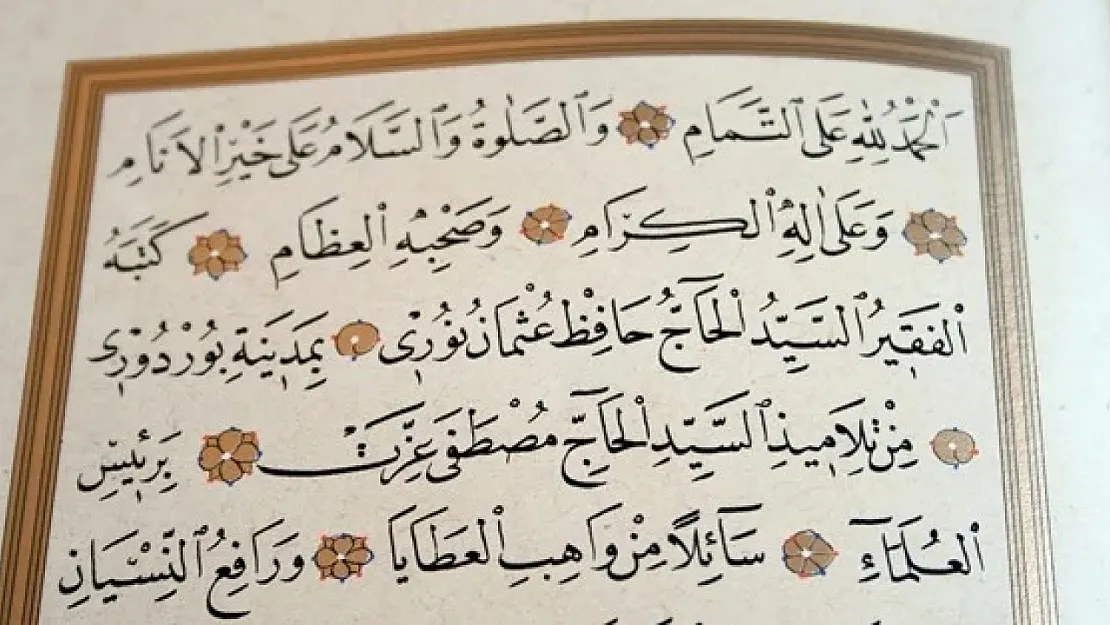 اَلْحَمْدُ لِلّٰهِ عَلَى التَّمَامِ وَالصَّلٰوةُ وَالسَّلَامُ عَلٰى خَيْرِ الْاَنَامِ
وَعَلٰى اٰلِهِ الْكِرَامِ وَصَحْبِهِ الْعِظَامِ كَتَبَهُ
الْفَقِيرُ السَّيِّدُ الْحَاجُّ حَافِظْ عُثْمَانْ نُورِى بِمَدِينَةِ بُورْدُورِى
مِنْ تِلَامِيذِ السَّيِّدِ الْحَاجِّ مُصْطَفٰى عِزَّتْ بِرَئِيسِ
الْعُلَمَاءِ سَائِلًا مِنْ وَاهِبِ الْعَطَايَا وَرَافِعِ النِّسْيَانِ